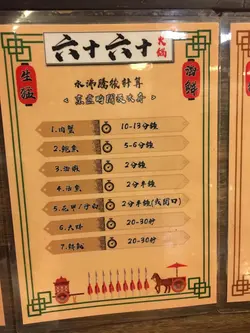 六十六十火鍋
生猛
海鮮
水沸騰後計算
1.肉蟹 10-13分鐘
2.鮑魚 5-6分鐘
3.海蝦 2分鐘
4.活魚 2分半鐘
5.花甲/沙白 2分半鐘(或開口)
6.大蜆 20-30秒
20-30秒